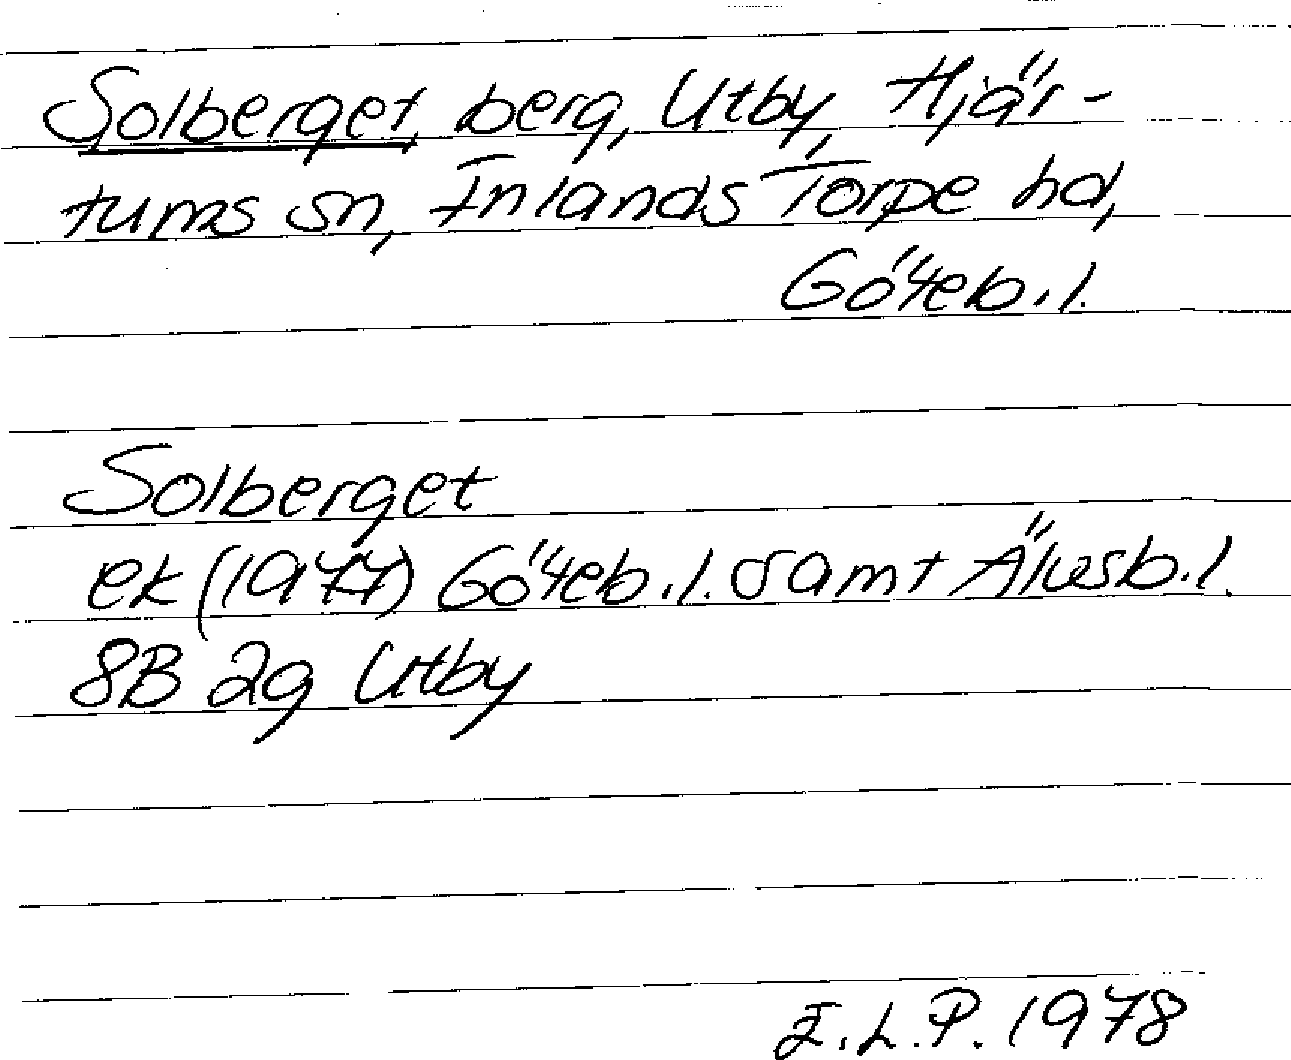 Solberget, berg, Utby, Hjär-
tums sn, Inlands Torpe hd,
Göteb.l.
Solberget
ek (1977) Göteb.l. samt Älvsb.l.
8B 2g Utby
I.L.P. 1978